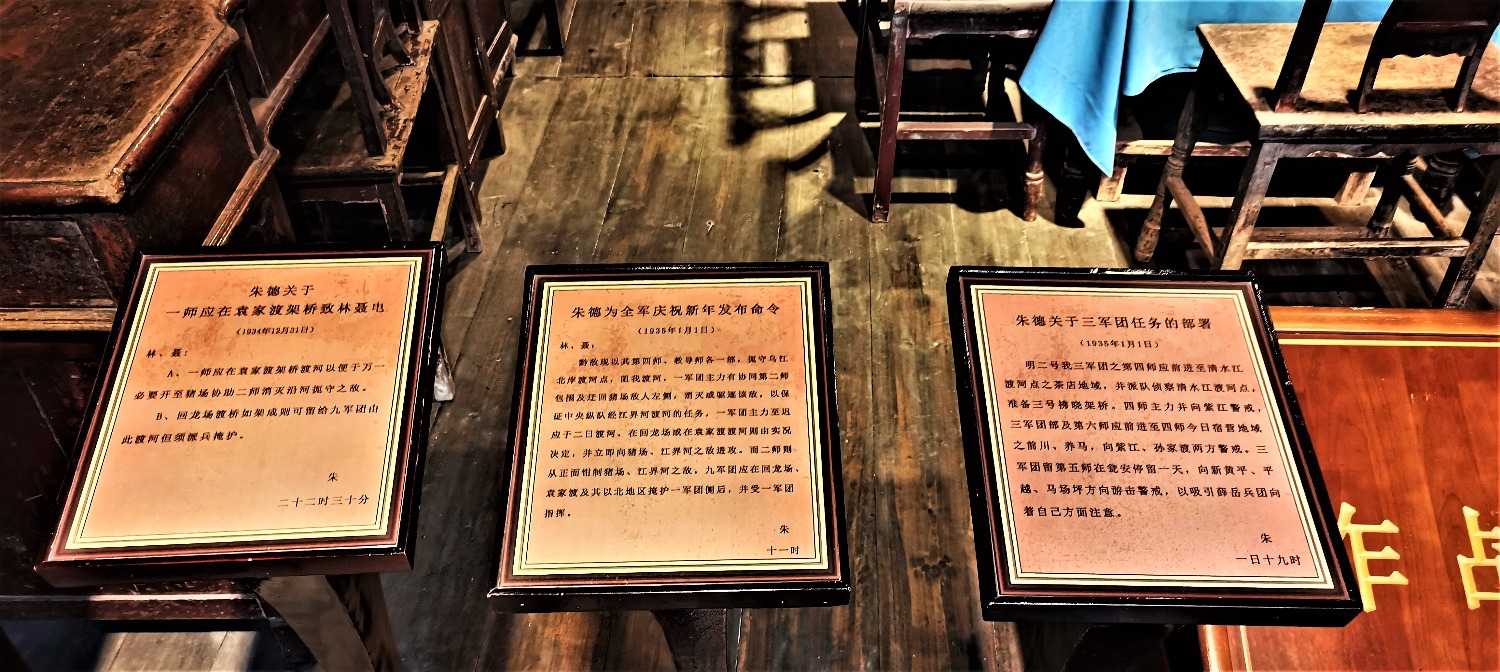 朱德关于
一师应在袁家渡架桥致林聂电
(1934年12月31日)
林、聂:
A、一师应在袁家渡架桥渡河以便于万一
必要开至猪场协助二师消灭沿河扼守之敌。
B、回龙场渡桥如架成则可留给九军团由
此渡河但须派兵掩护。
朱
二十二时三十分
朱德为全军庆祝新年发布命令
(1935年1月1日)
林、聂:
黔敌现以其第四师、教导师各一部,扼守乌江
北岸渡河点,阻我渡河,一军团主力有协同第二师
包围及迂回猪场敌人左侧,消灭或驱逐该敌,以保
证中央纵队经江界河渡河的任务,一军团主力至迟
应于二日渡河,在回龙场或在袁家渡渡河则由实况
决定,并立即向猪场、江界河之敌进攻。而二师则
从正面钳制猪场、江界河之敌,九军团应在回龙场、
袁家渡及其以北地区掩护一军团侧后,并受一军团
指挥。
朱
十一时
朱德关于三军团任务的部署
(1935年1月1日)
明二号我三军团之第四师应前进至清水江
渡河点之茶店地域,并派队侦察清水江渡河点,
准备三号拂晓架桥。四师主力并向紫江警戒,
三军团部及第六师应前进至四师今日宿营地域
之前川、养马,向紫江、孙家渡两方警戒。三
军团留第五师在瓮安停留一天,向新黄平、平
越、马场坪方向游击警戒,以吸引薛岳兵团向
着自己方面注意。
朱
一日十九时